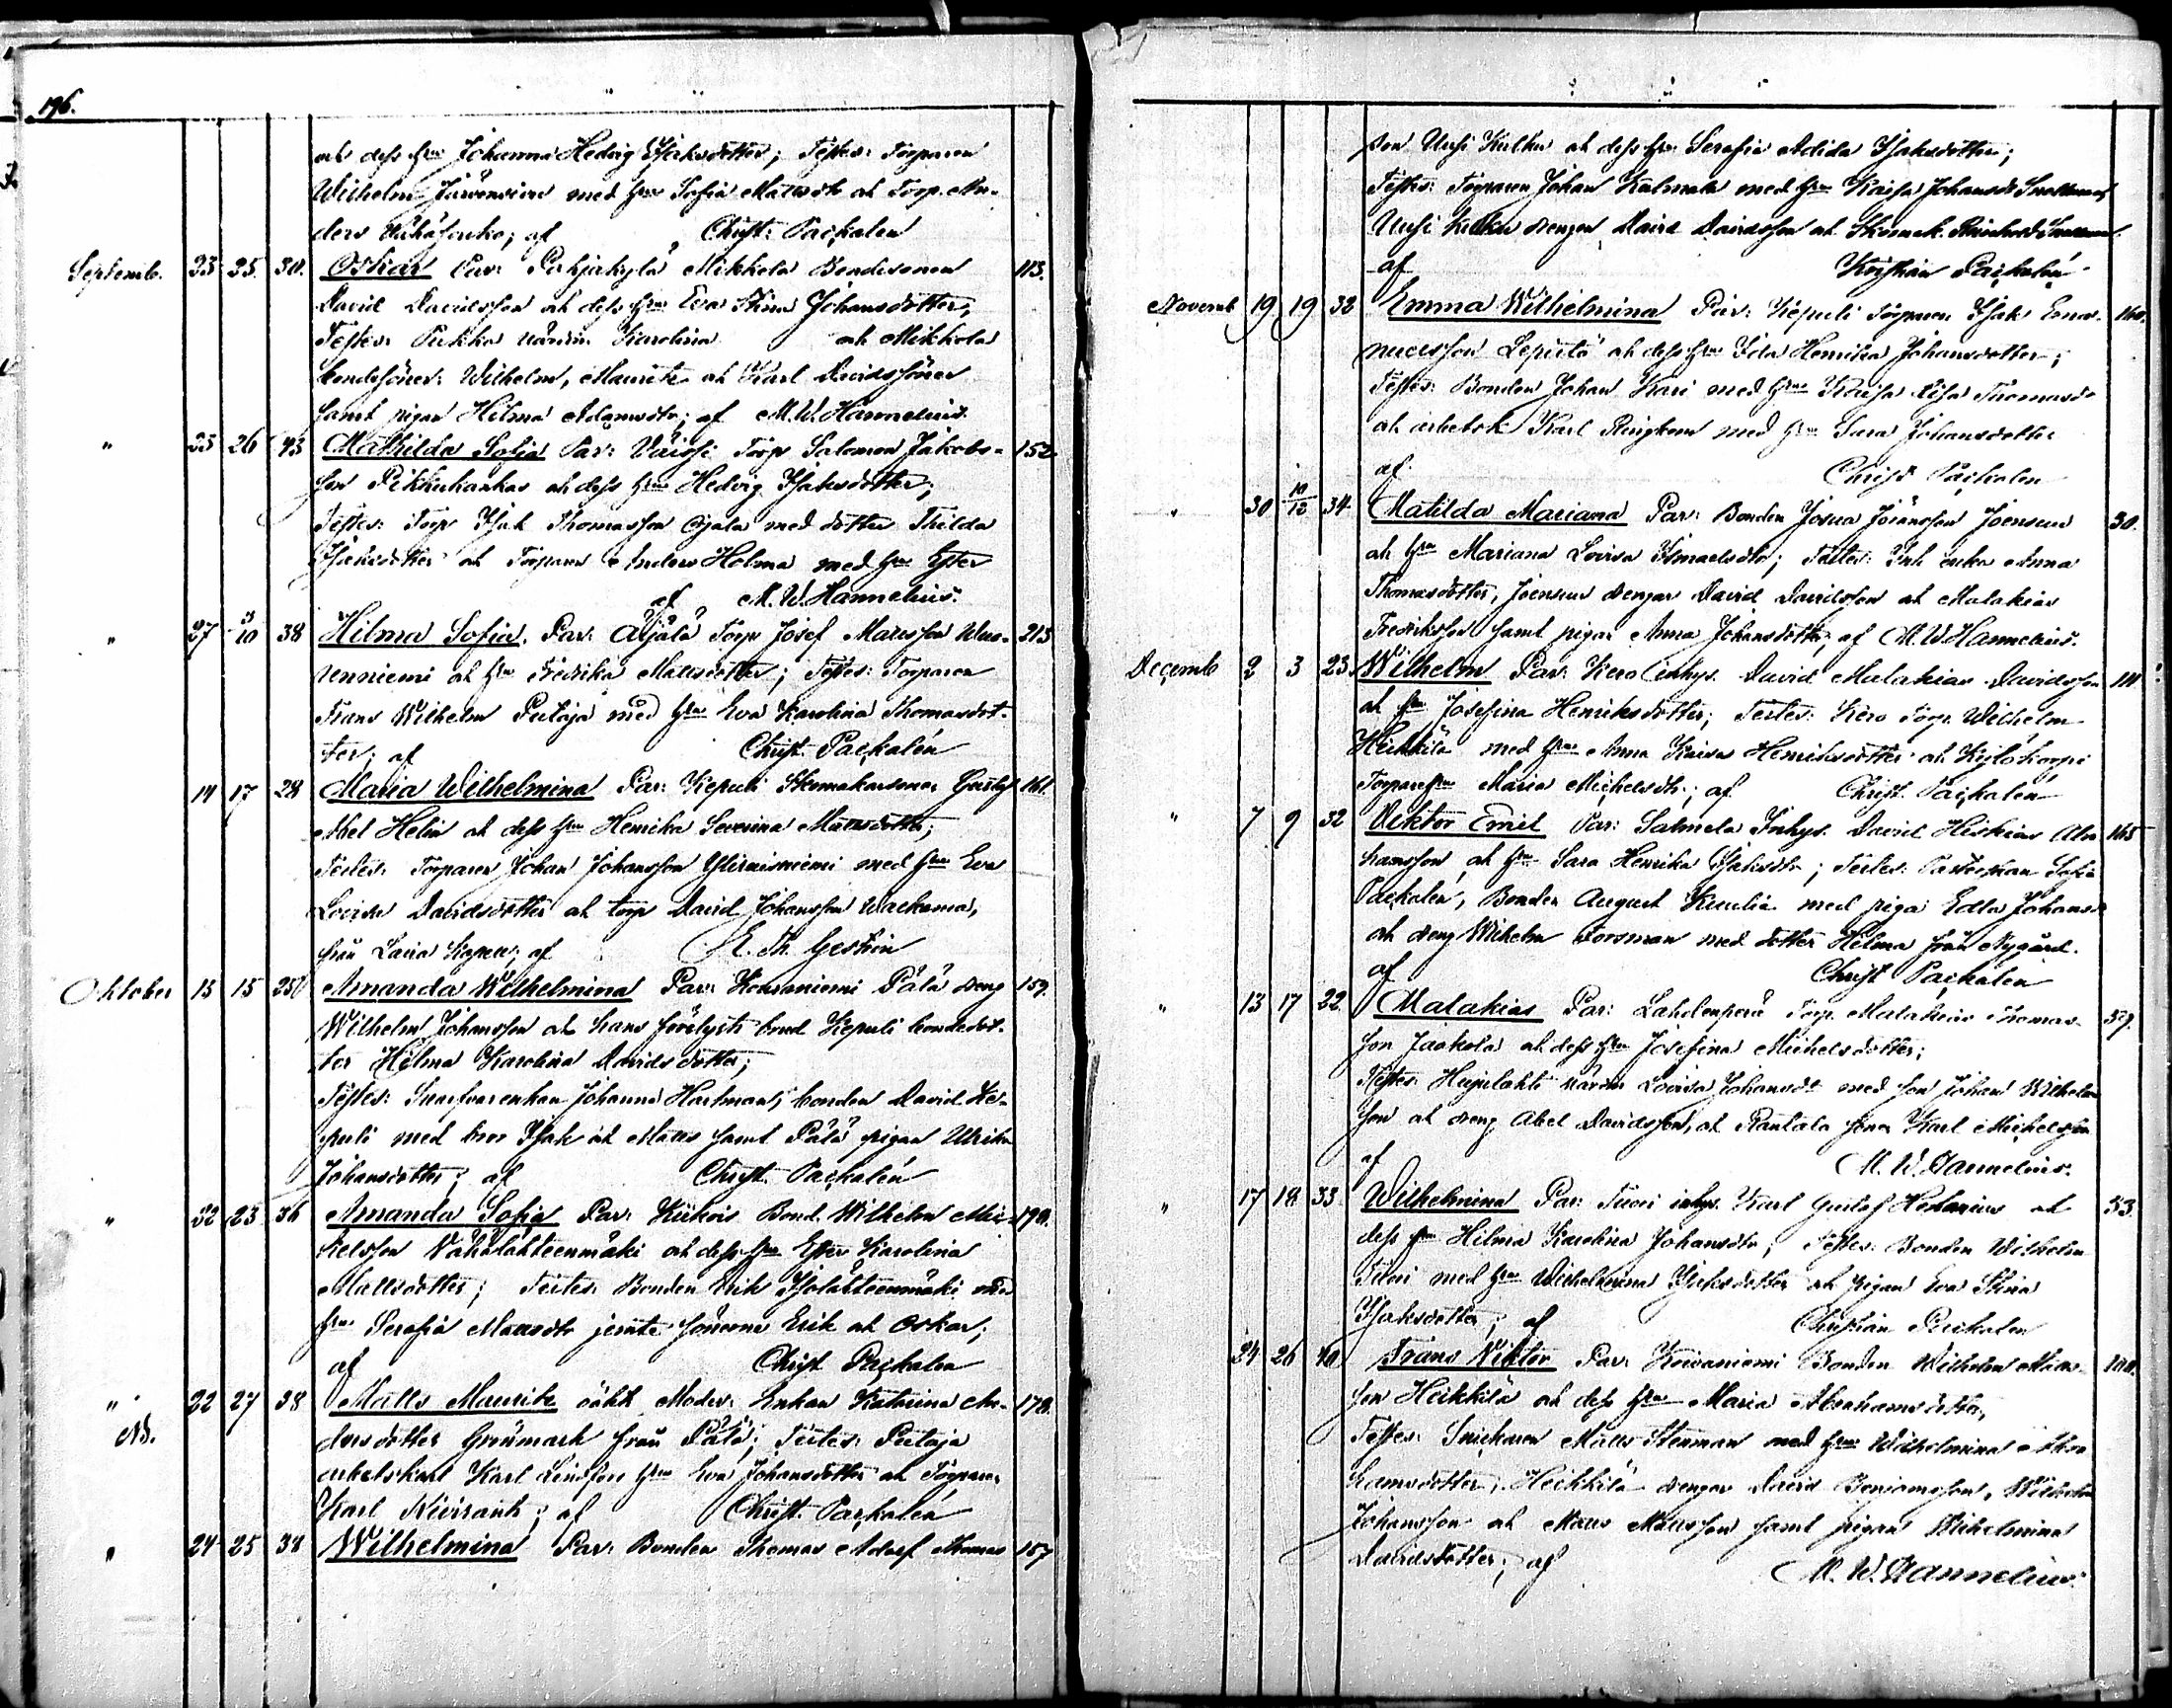 196.
och dess hru Johanna Hedvig Isaksdotter; Testes: Torparen
Wilhelm med hru Sofia Mattsdtr och Torp. An-
ders af Christ. Paçkalén
Septemb. 23 25. 30. Oskar Par: Pohjakylä Mikkola Bondesonen 113.
David Davidsson och dess hru Eva Stina Johansdotter,
Testes: Pukka Karolina och Mikkola
bondesöner: Wilhelm, Maurits och Karl Davidssöner
samt pigan Hilma Adamsdtr; af M. W. Hannelius.
" 23 26 43 Mathilda Sofia Par: Torp Salomon Jakobs- 152.
son Pikkukankas och dess hru Hedvig Isaksdotter;
Testes: Torp Isak Thomasson Ojala med dotter Thilda
Isaksdotter och Torparen Anders Holma med hru Ester
af M. W. Hannelius.
" 27 3/10 38 Hilma Sofia. Par: Aljålå Torp Josef Mattsson 213
renniemi och hru Fredrika Mattsdotter; Testes: Torparen
Frans Wilhelm Peltoja med hru Eva Karolina Thomasdot-
ter; af Christ. Paçkalén
14 17 28 Maria Wilhelmina Par: Kepuli Skomakaresonen Gustaf 161.
Abel Helin och dess hru Henrika Severina Mattsdotter;
Testes: Torparen Johan Johansson med hru Eva
Lovisa Davidsdotter och torp David Johansson
från af
Oktober 13 15 25 Amanda Wilhelmina Par: Koivaniemi Pålå dreng 159.
Wilhelm Johansson och hans förelysta brud Kepuli bondedot-
ter Hilma Karolina Davidsdotter;
Testes: Johanna Hartman, bonden David Ke-
puli med bror Isak och Matts samt Pålå pigan Ulrika
Johansdotter; af Christ. Paçkalén
" 22 23 36 Amanda Sofia Par: Bond. Wilhelm Mi- 190.
kelsson Vähälahteenmäki och dess hru Ester Karolina
Mattsdotter; Testes: Bonden Erik Isolähteenmäki med
hru Serafia Mattsdtr jemte sönerne Erik och Oskar;
af Christ. Paçkalén
" 22 27 38 Matts Maurits oäkt Moder: Enkan Katarina An- 178.
NB. dersdotter Grönmark från Pålå; Testes: Peltoja
arbetskarl Karl Lindfors hru Eva Johansdotter och Torparen
Karl Kivirank; af Christ. Paçkalén
" 24 25 38 Wilhelmina Par: Bonden Thomas Adolf Thomas 157
son Uusi och dess hru Serafia Adida Isaksdotter;
Testes: Torparen Johan med hru Kaisa Johansdtr
Uusi drengen David Davidsson och Skomak.
af Kristian Paçkalén
Novemb 19 19 32 Emma Wilhelmina Par: Kepuli Torparen Isak Ema- 160.
nuelsson och dess hru Ida Henrika Johansdotter;
Testes: Bonden Johan Kari med hru Kaisa Lisa Thomasdtr
och Karl Ringbom med hru Sara Johansdotter
af Christ Paçkalén
" 30 10/12 34. Matilda Mariana Par: Bonden Josua Joensuu 30.
och hru Mariana Lovisa Ismaelsdtr; Testes: Inh enka Anna
Thomasdotter, Joensuu drengar David Davidsson och Malakias
Fredriksson samt pigan Anna Johansdotter; af M. W. Hannelius.
Decemb 2 3 23. Wilhelm Par: Kero inhys. David Malakias Davidsson 111
och hru Josefina Henriksdotter; Testes: Kero Torp. Wilhelm
Heikkilä med hru Anna Kaisa Henriksdotter och Kylökorpi
Torparehru Maria Michelsdtr; af Christ. Paçkalén
" 7 9 32 Viktor Emil Par: Salmela Inhys. David Hiskias Abra 165
hamsson, och hru Sara Henrika Isaksdtr; Testes: Pastorskan Sofia
Paçkalén, Bonden August med piga Edla Johansd
och dreng Wilhelm Forsman med dotter Hilma från Nygård.
af Christ Paçkalén
" 13 17 22. Malakias Par: Lahdenperä Torp. Malakias Thomas- 59.
son Jaakola och dess hru Josefina Michelsdotter;
Testes: Lovisa Johansdtr med son Johan Wilhelm
son och dreng Abel Davidsson, och Rantala sonen Karl Michelsson
af M. W. Hannelius.
" 17 18 33 Wilhelmina Par: Tuori inhys. Karl Gustaf och 53.
dess hru Hilma Karolina Johansdtr; Testes: Bonden Wilhelm
Tuori med hru Wilhelmina Isaksdotter och pigan Eva Stina
Isaksdotter; af Christian Paçkalén
24 26 40 Frans Viktor Par: Koivaniemi Bonden Wilhelm 100.
son Heikkilä och dess hru Maria Abrahamsdotter,
Testes: Snickaren Matts Stenman med hru Wilhelmina Abra
hamsdotter; Heikkilä drengar David Benjamsson, Wilhelm
Johansson och Matts Mattsson samt pigan Wilhelmina
Davidsdotter; af M. W. Hannelius.